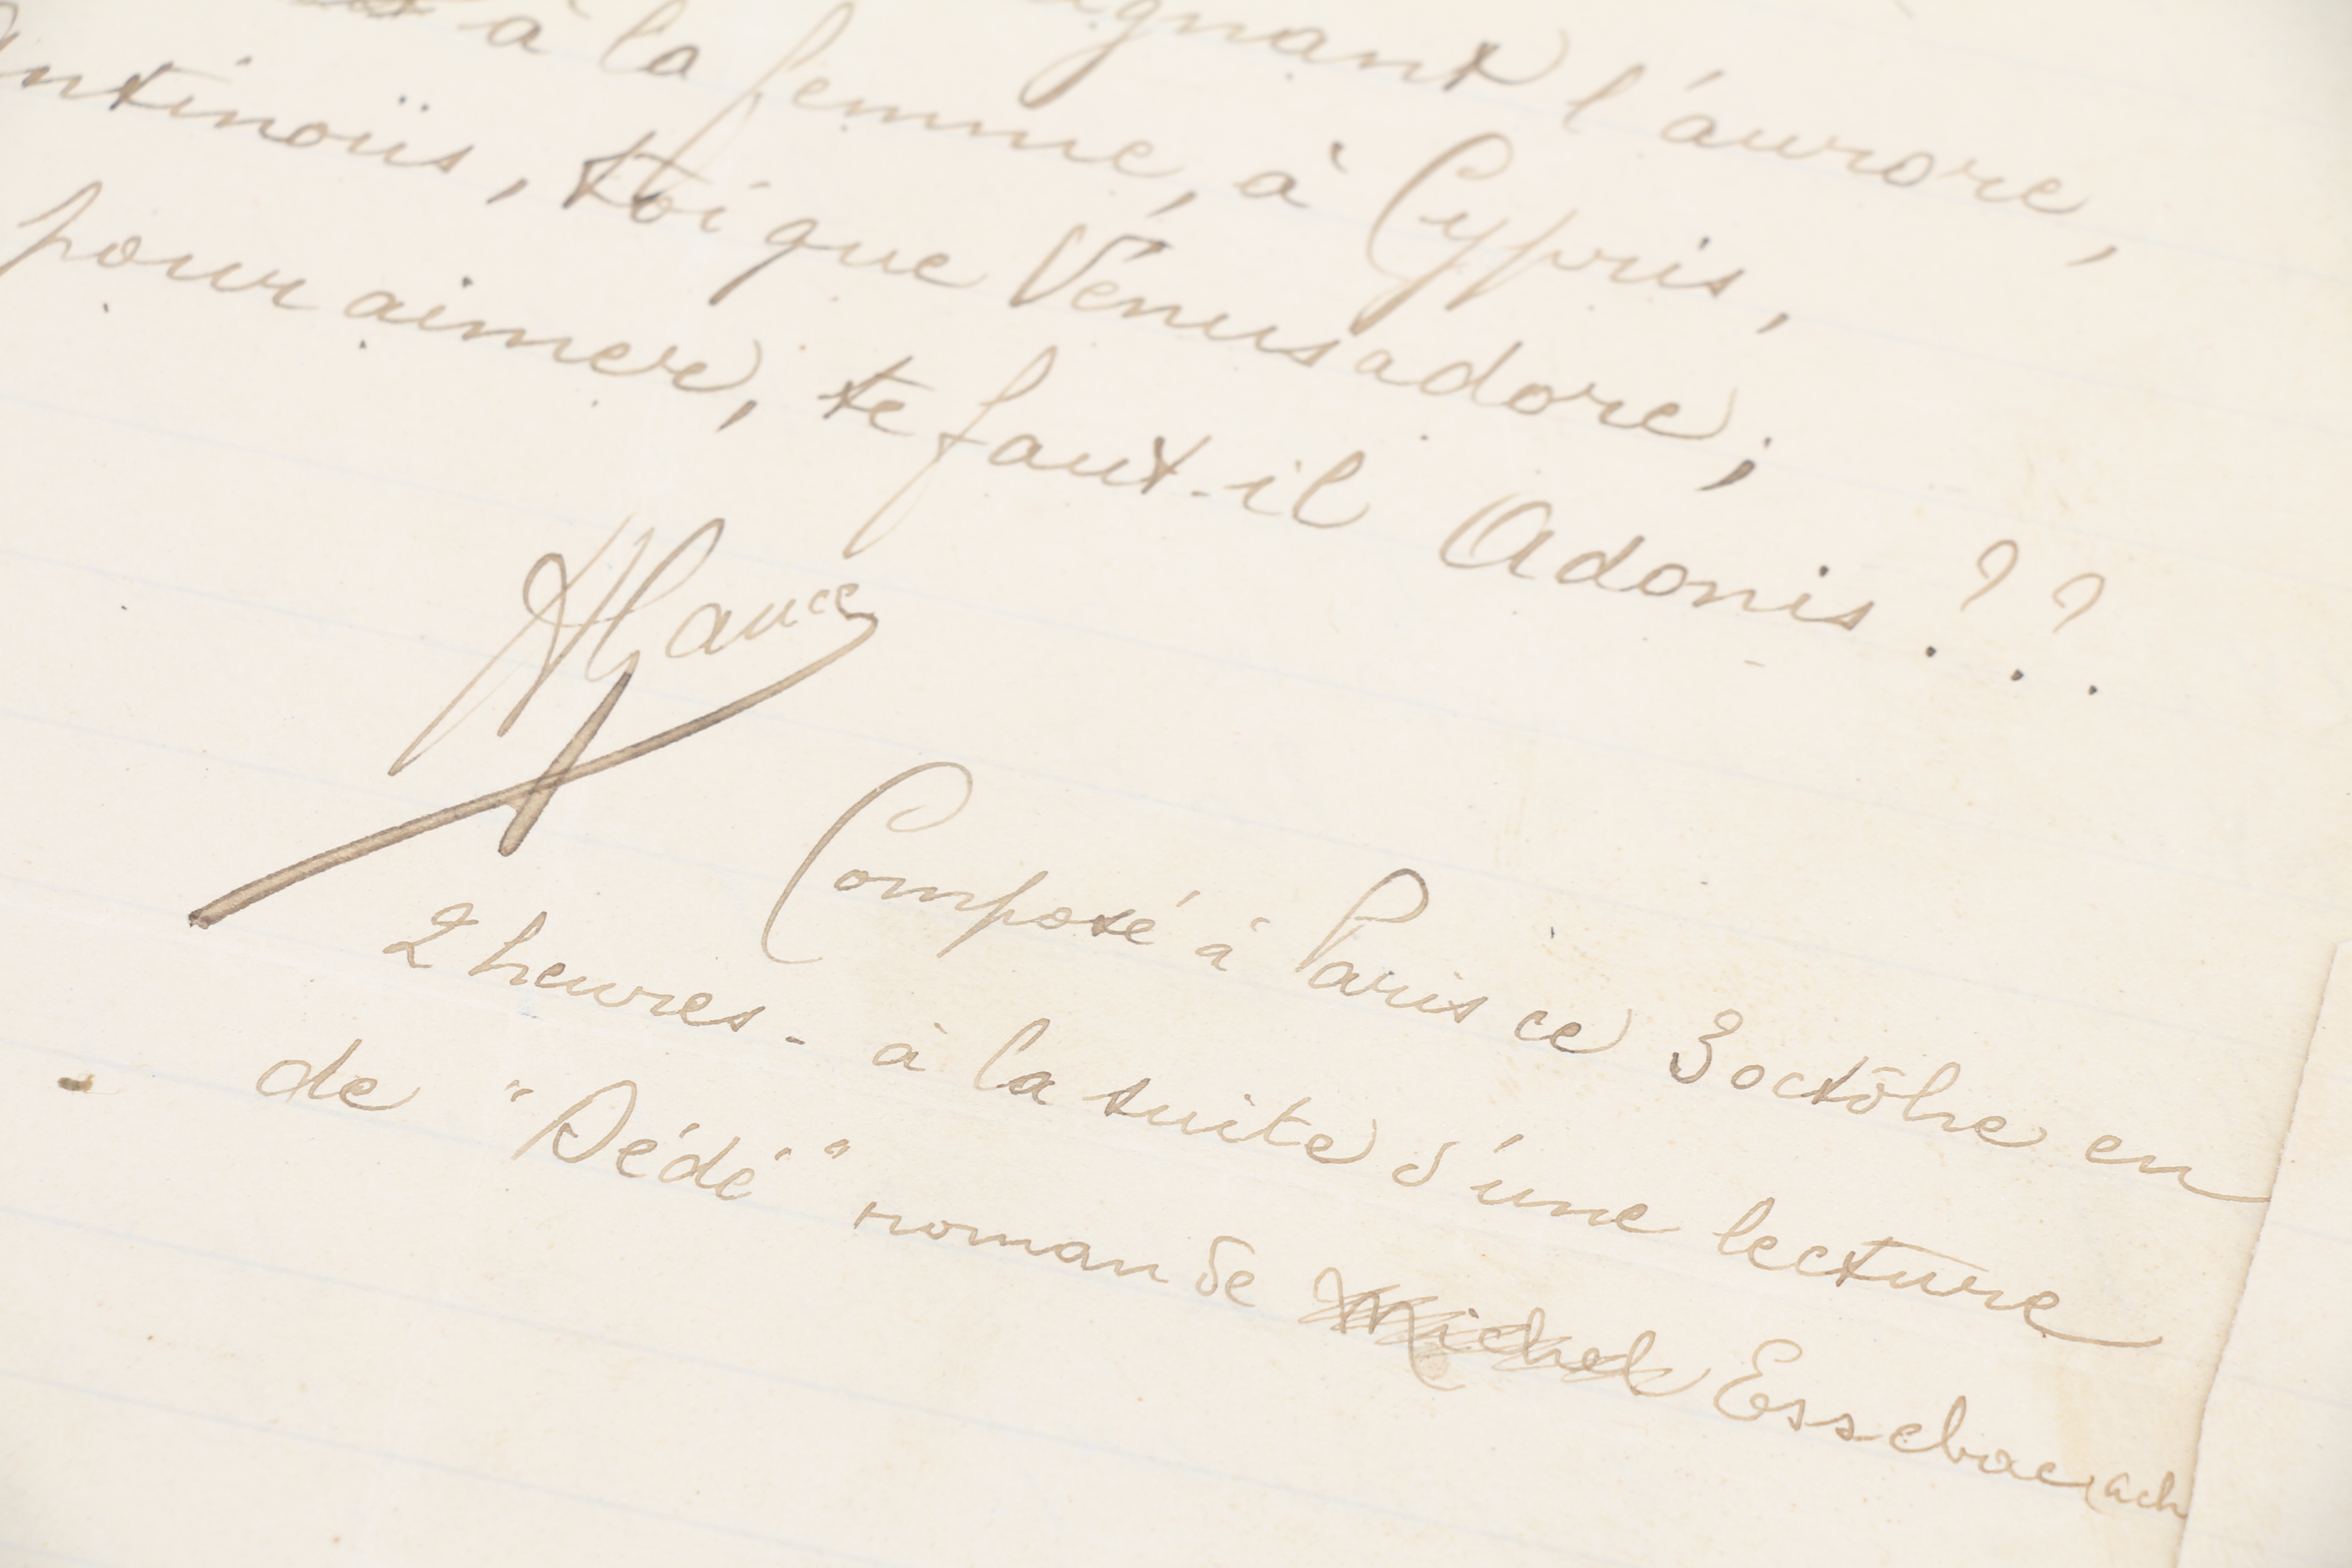 l'aurore,
à la femme, à Cypris,
ntinoüs, toi que Vénus adore,
pour aimer, te faut-il Adonis ??.
Composé à Paris ce 3 octôbre en
2 heures - à la suite d'une lecture
de "Dédé" roman de Michel Essebac(ach